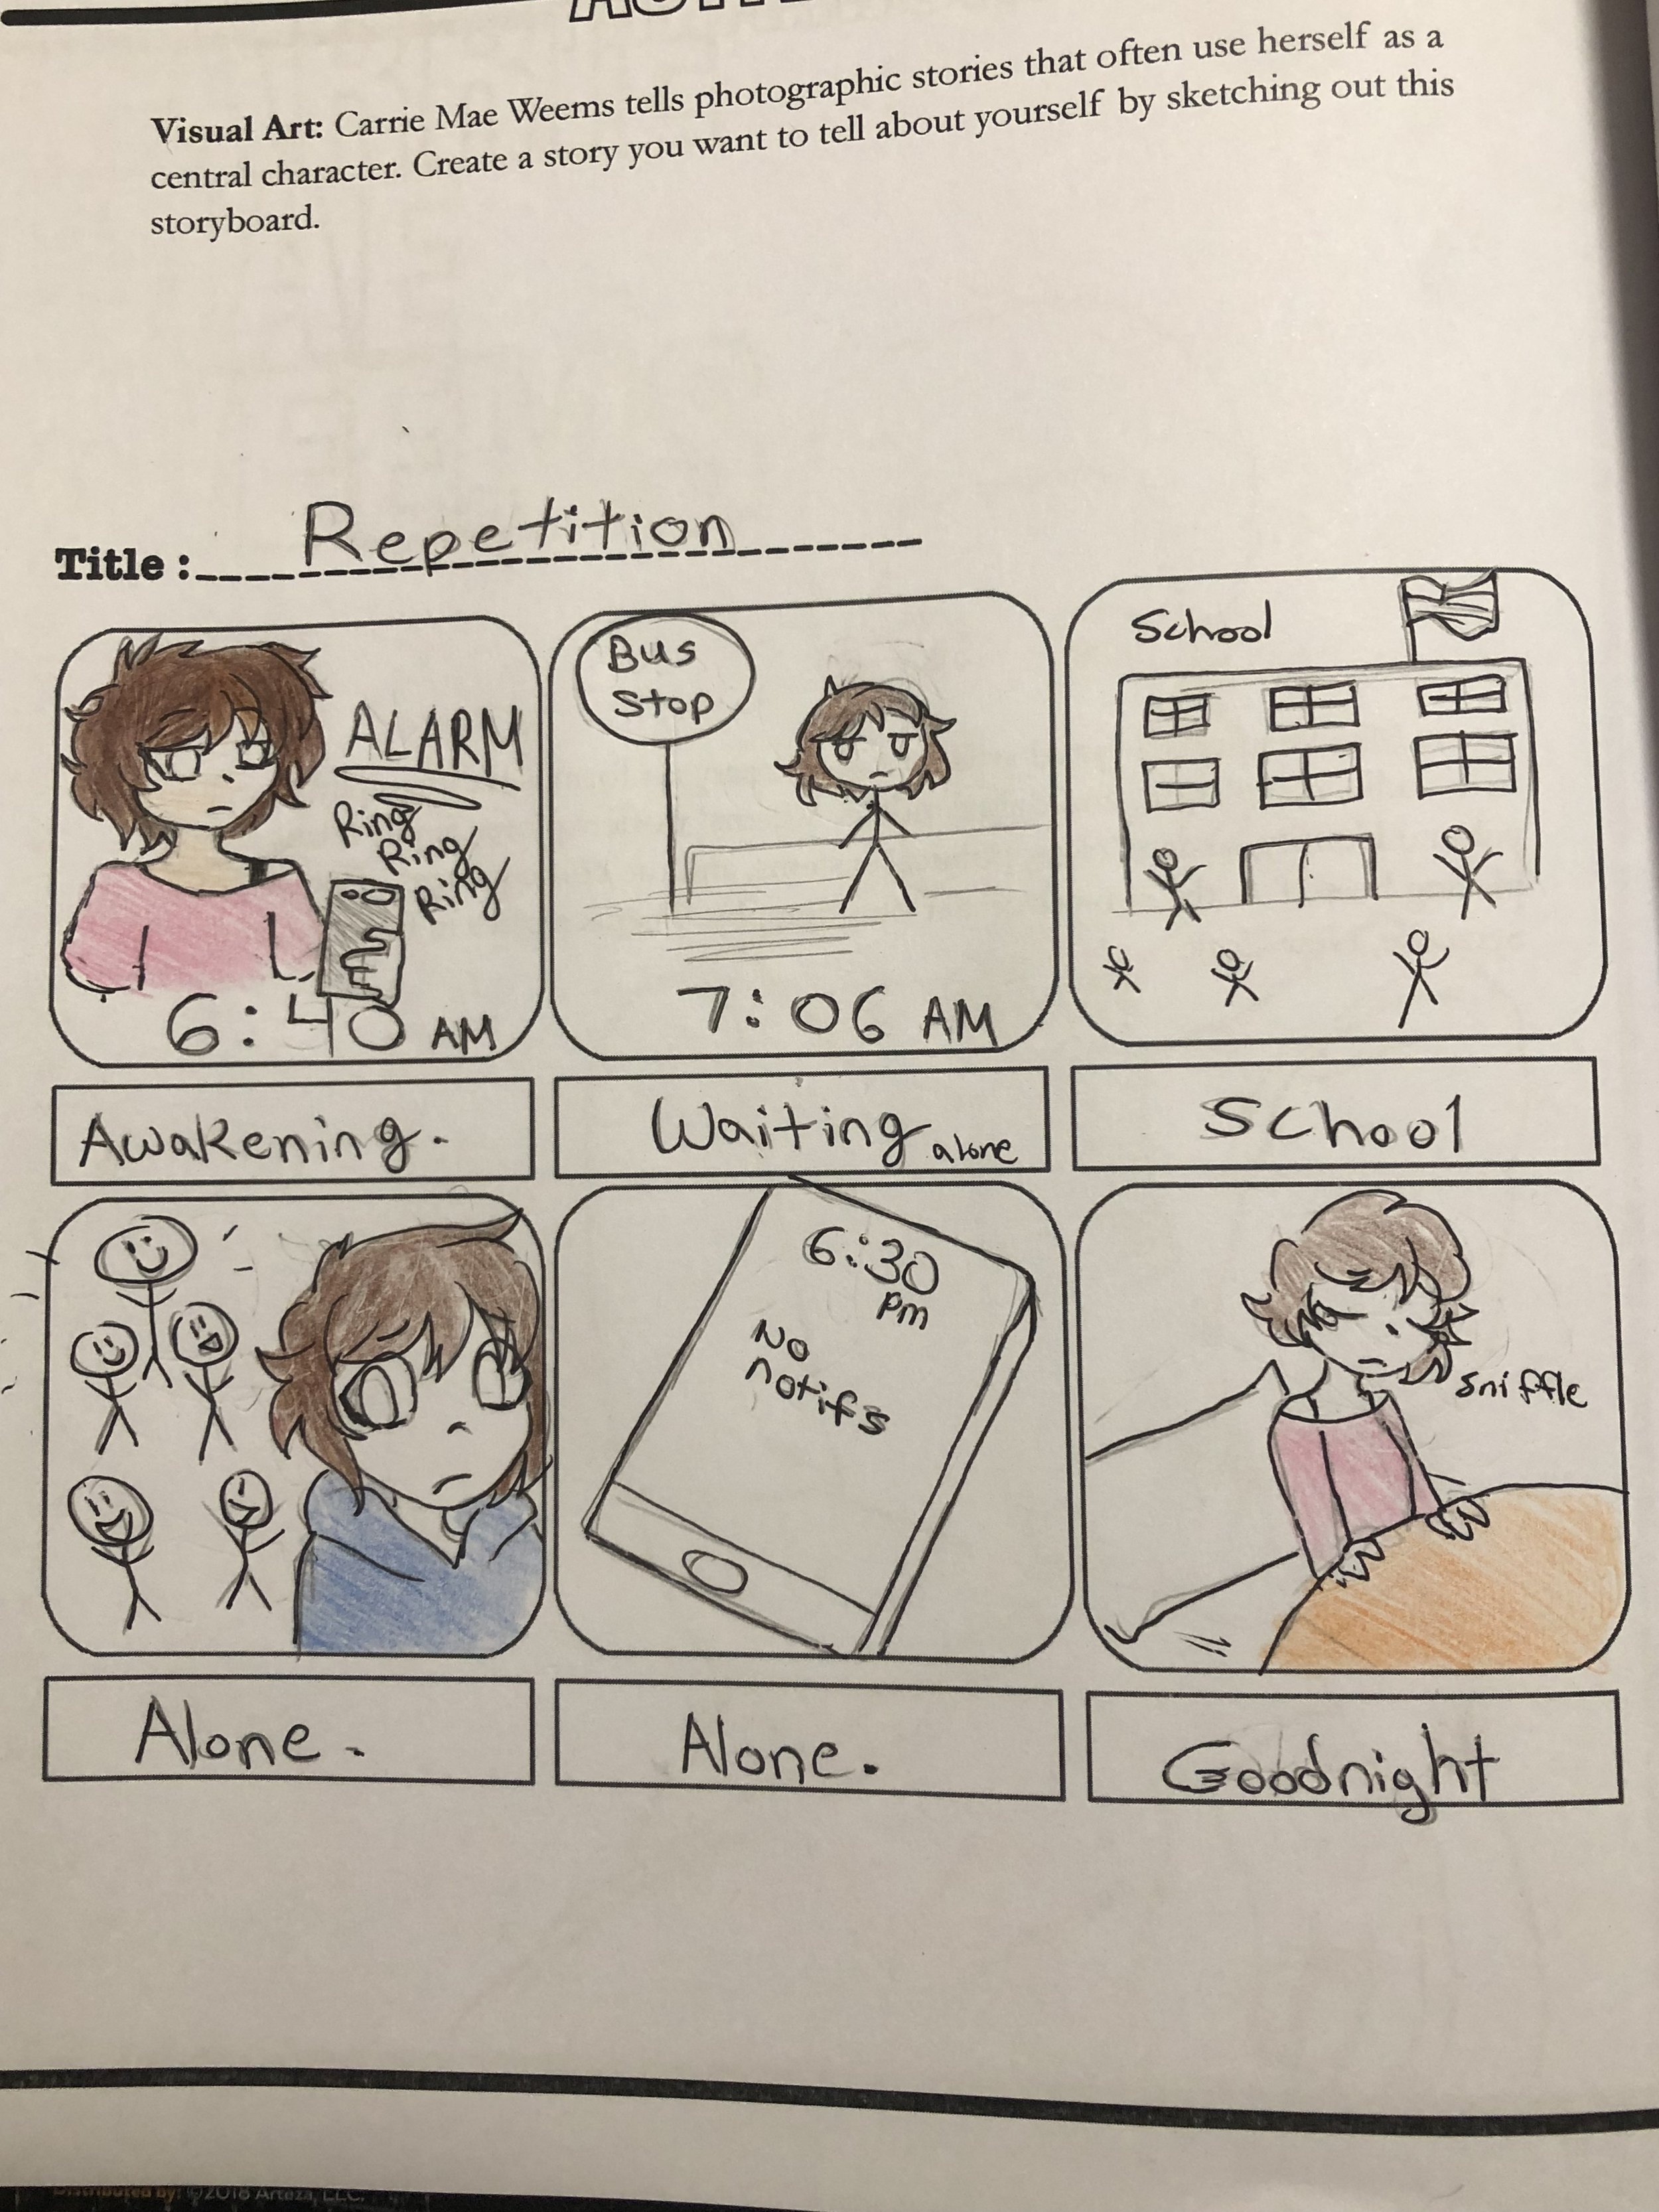 Visual Art: Carrie Mae Weems tells photographic stories that often use herself as a
central character. Create a story you want to tell about yourself by sketching out this
storyboard.
Title: Repetition
ALARM
Ring
Ring
Ring
6:40 AM
Bus
Stop
7:06 AM
School
Awakening.
Waiting alone
School
6:30
pm
No
notifs
sniffle
Alone.
Alone.
Goodnight
Distributed by: ©2018 Arteza, LLC.